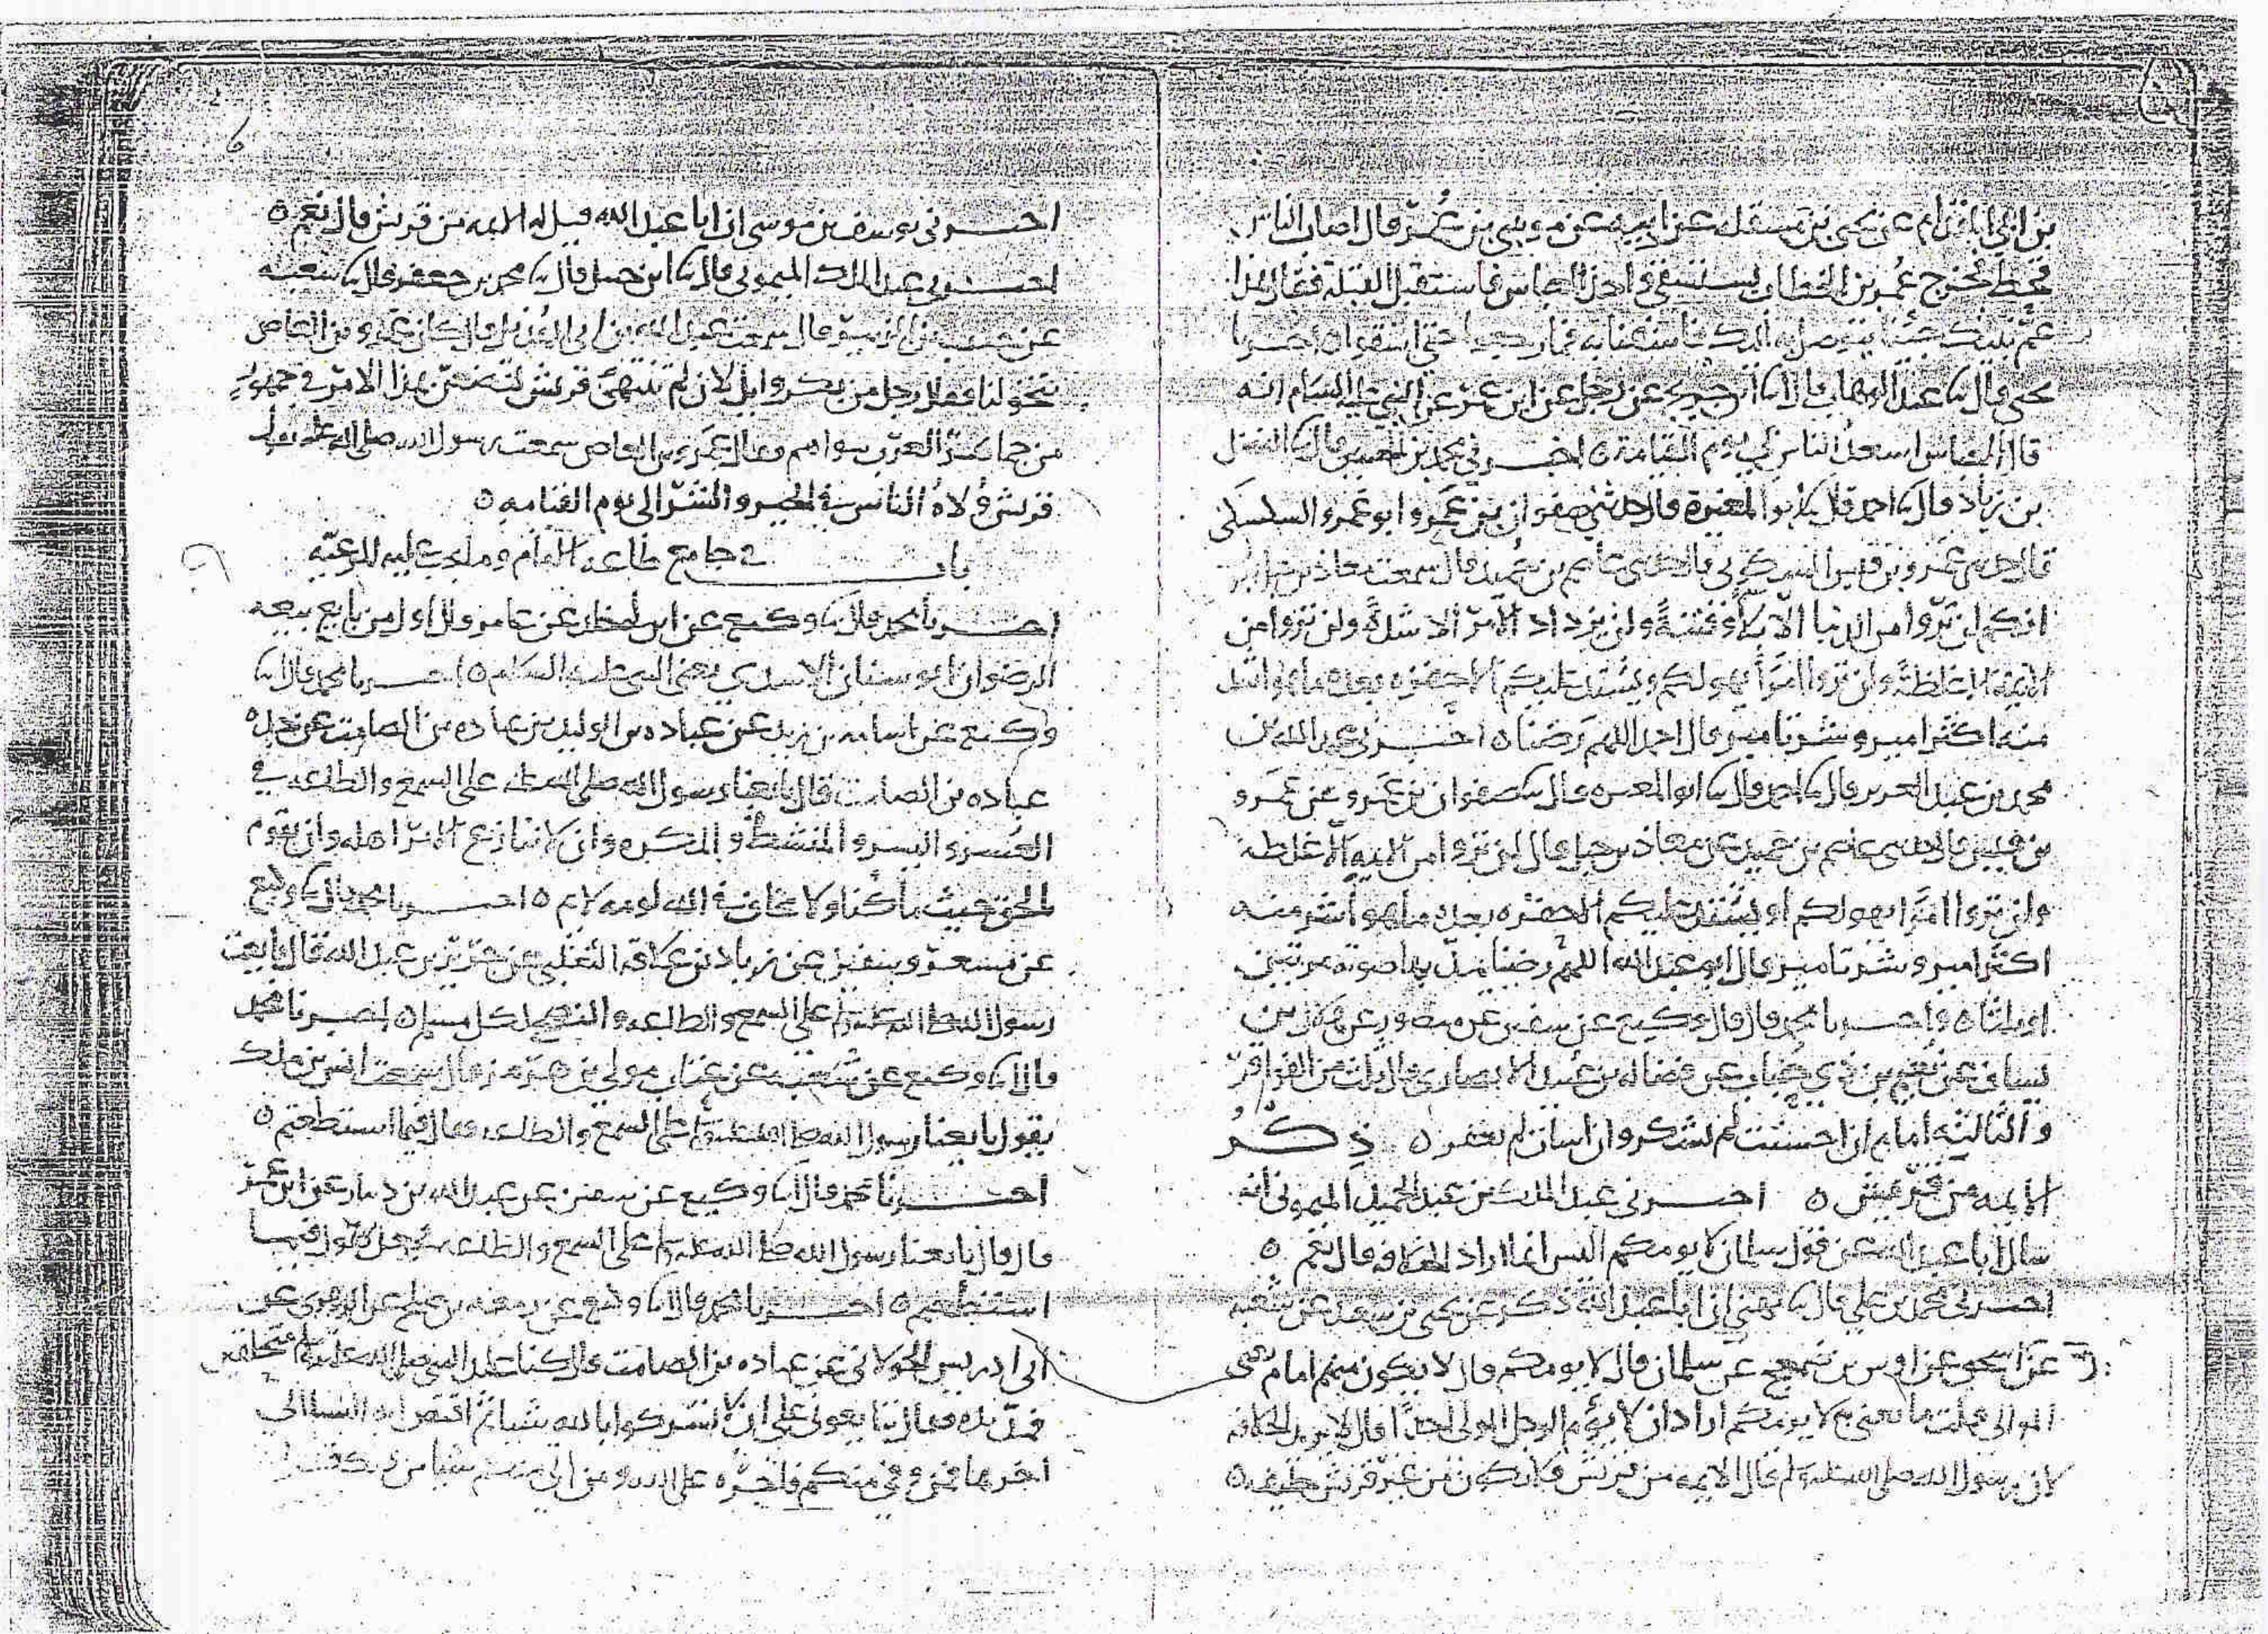 بن ابي عن يحيى بن عن ابيه عن موسى بن عُمر قال اصاب الناس
قحط فخرج عُمر بن الخطاب يستسقي واخذ العباس فاستقبل القبلة فقال هذا
عمّ نبيك جئنا نتوصل به اليك فاسقنا به فما رجعوا حتى اسقوا ٥ اخبرنا
يحيى قال ثنا عبد الوهاب قال انا عن رجل عن ابن عمر عن النبي عليه السلام انه
قال العباس اسعد الناس بي يوم القيامة ٥ اخبرني محمد بن قال ثنا الفضل
بن زياد قال ثنا احمد قال ثنا ابو المغيرة قال حدثني صفوان بن عمرو ابو عمرو السكسكي
قال حدثني عمرو بن قيس السكوني قال حدثني عاصم بن حُميد قال سمعت معاذ بن جبل
انكم لن تروا من الدنيا الا بلاءً وفتنةً ولن يزداد الامر الا شدةً ولن تروا من
الائمة الا غلظةً ولن تروا امراً يهولكم ويشتد عليكم الا حقره بعده ما هو اشد
منه اكثر امير وشر تامير قال احمد اللهم رضنا ٥ اخبرني عبد الله بن
محمد بن عبد العزيز قال ثنا احمد قال ثنا ابو المغيره قال ثنا صفوان بن عمرو عن عمرو
بن قيس قال حدثني عاصم بن حميد عن معاذ بن جبل قال لن تروا من الايمه الا غلظه
ولن تروا امرا يهولكم او يشتد عليكم الا حقره بعده ما هو اشر منه
اكثر امير وشر تامير قال ابو عبد الله اللهم رضنا يمدّ بها صوته مرتين
او ثلثا ٥ واخبرنا محمد قال قال وكيع عن سفين عن منصور عن هلال بن
يساف عن نعيم بن ذي حباب عن فضاله بن عُبيد الانصاري قال ثلث من الفواقر
والثالثه امام ان احسنت لم يشكر وان اسات لم يغفر ٥ ذِكرُ
الايمه من قريش ٥ اخبرني عبد الملك بن عبد الحميد الميموني انه
سال ابا عبد الله عن قول سلمان لا يومكم اليس انما اراد الخلافه قال نعم ٥
اخبرني محمد بن علي قال ثنا مهنى ان ابا عبد الله ذكر عن يحيى بن سعيد عن شعبه
عن ابي اسحق عن اوس بن ضمعج عن سلمان قال لا يومكم قال لا يكون منهم امام يعني
الموالي فقلت ما يعني لا يومكم اراد ان لا يؤم الرجل المولى احدًا قال لا يريد الخلافه
لان رسول الله صلى الله عليه وسلم قال الايمه من قريش فلا يكون من غير قريش خليفه ٥
6
اخبرني يوسف بن موسى ان ابا عبد الله قيل له الايمه من قريش قال نعم ٥
اخبرني عبد الملك الميموني قال ثنا ابن حنبل قال ثنا محمد بن جعفر قال ثنا شعبه
عن حبيب بن الزبير قال سمعت عبد الله بن ابي الهُذيل قال كان عمرو بن العاص
يتخولنا فقال رجل من بكر وايل لان لم تنتهي قريش لتضعنّ هذا الامر في جمهور
من جماهير العرب سواهم فقال عمرو بن العاص سمعت رسول الله صلى الله عليه يقول
قريش وُلاهُ الناس في الخير والشر الى يوم القيامه ٥
باب في جامع طاعه الامام وما يجب عليه للرعيه
اخبرنا محمد قال ثنا وكيع عن ابن ابي خالد عن عامر قال اول من بايع بيعه
الرضوان ابو سنان الاسدي يعني النبي عليه السلام ٥ اخبرنا محمد قال ثنا
وكيع عن اسامه بن زيد عن عباده بن الوليد بن عباده بن الصامت عن جده
عباده بن الصامت قال بايعنا رسول الله صلى الله عليه على السمع والطاعه في
العُسر واليسر والمنشط والمكره وان لا ننازع الامر اهله وان نقوم
بالحق حيث ما كنا ولا نخاف في الله لومه لايم ٥ اخبرنا محمد قال ثنا وكيع
عن مسعر وسفين عن زياد بن علاقه الثعلبي عن جرير بن عبد الله قال بايعت
رسول الله صلى الله عليه وسلم على السمع والطاعه والنصح لكل مسلم ٥ اخبرنا محمد
قال ثنا وكيع عن شعبه عن عتاب مولى بن هرمز قال سمعت انس بن ملك
يقول بايعنا رسول الله صلى الله عليه وسلم على السمع والطاعه فقال فيما استطعتم ٥
اخبرنا محمد قال ثنا وكيع عن سفين عن عبد الله بن دينار عن ابن عُمر
قال قال بايعنا رسول الله صلى الله عليه وسلم على السمع والطاعه فجعل يقول فيما
استطعتم ٥ اخبرنا محمد قال ثنا وكيع عن عن الزهري عن
ابي ادريس الخولاني عن عباده بن الصامت قال كنا عند النبي صلى الله عليه وسلم
فمدّ يده فقال تبايعوني على ان لا تشركوا بالله شيا ثم اقترا ايه النسا التي
اخرها فمن وفى منكم فاجره على الله ومن اتى منهم شيا من